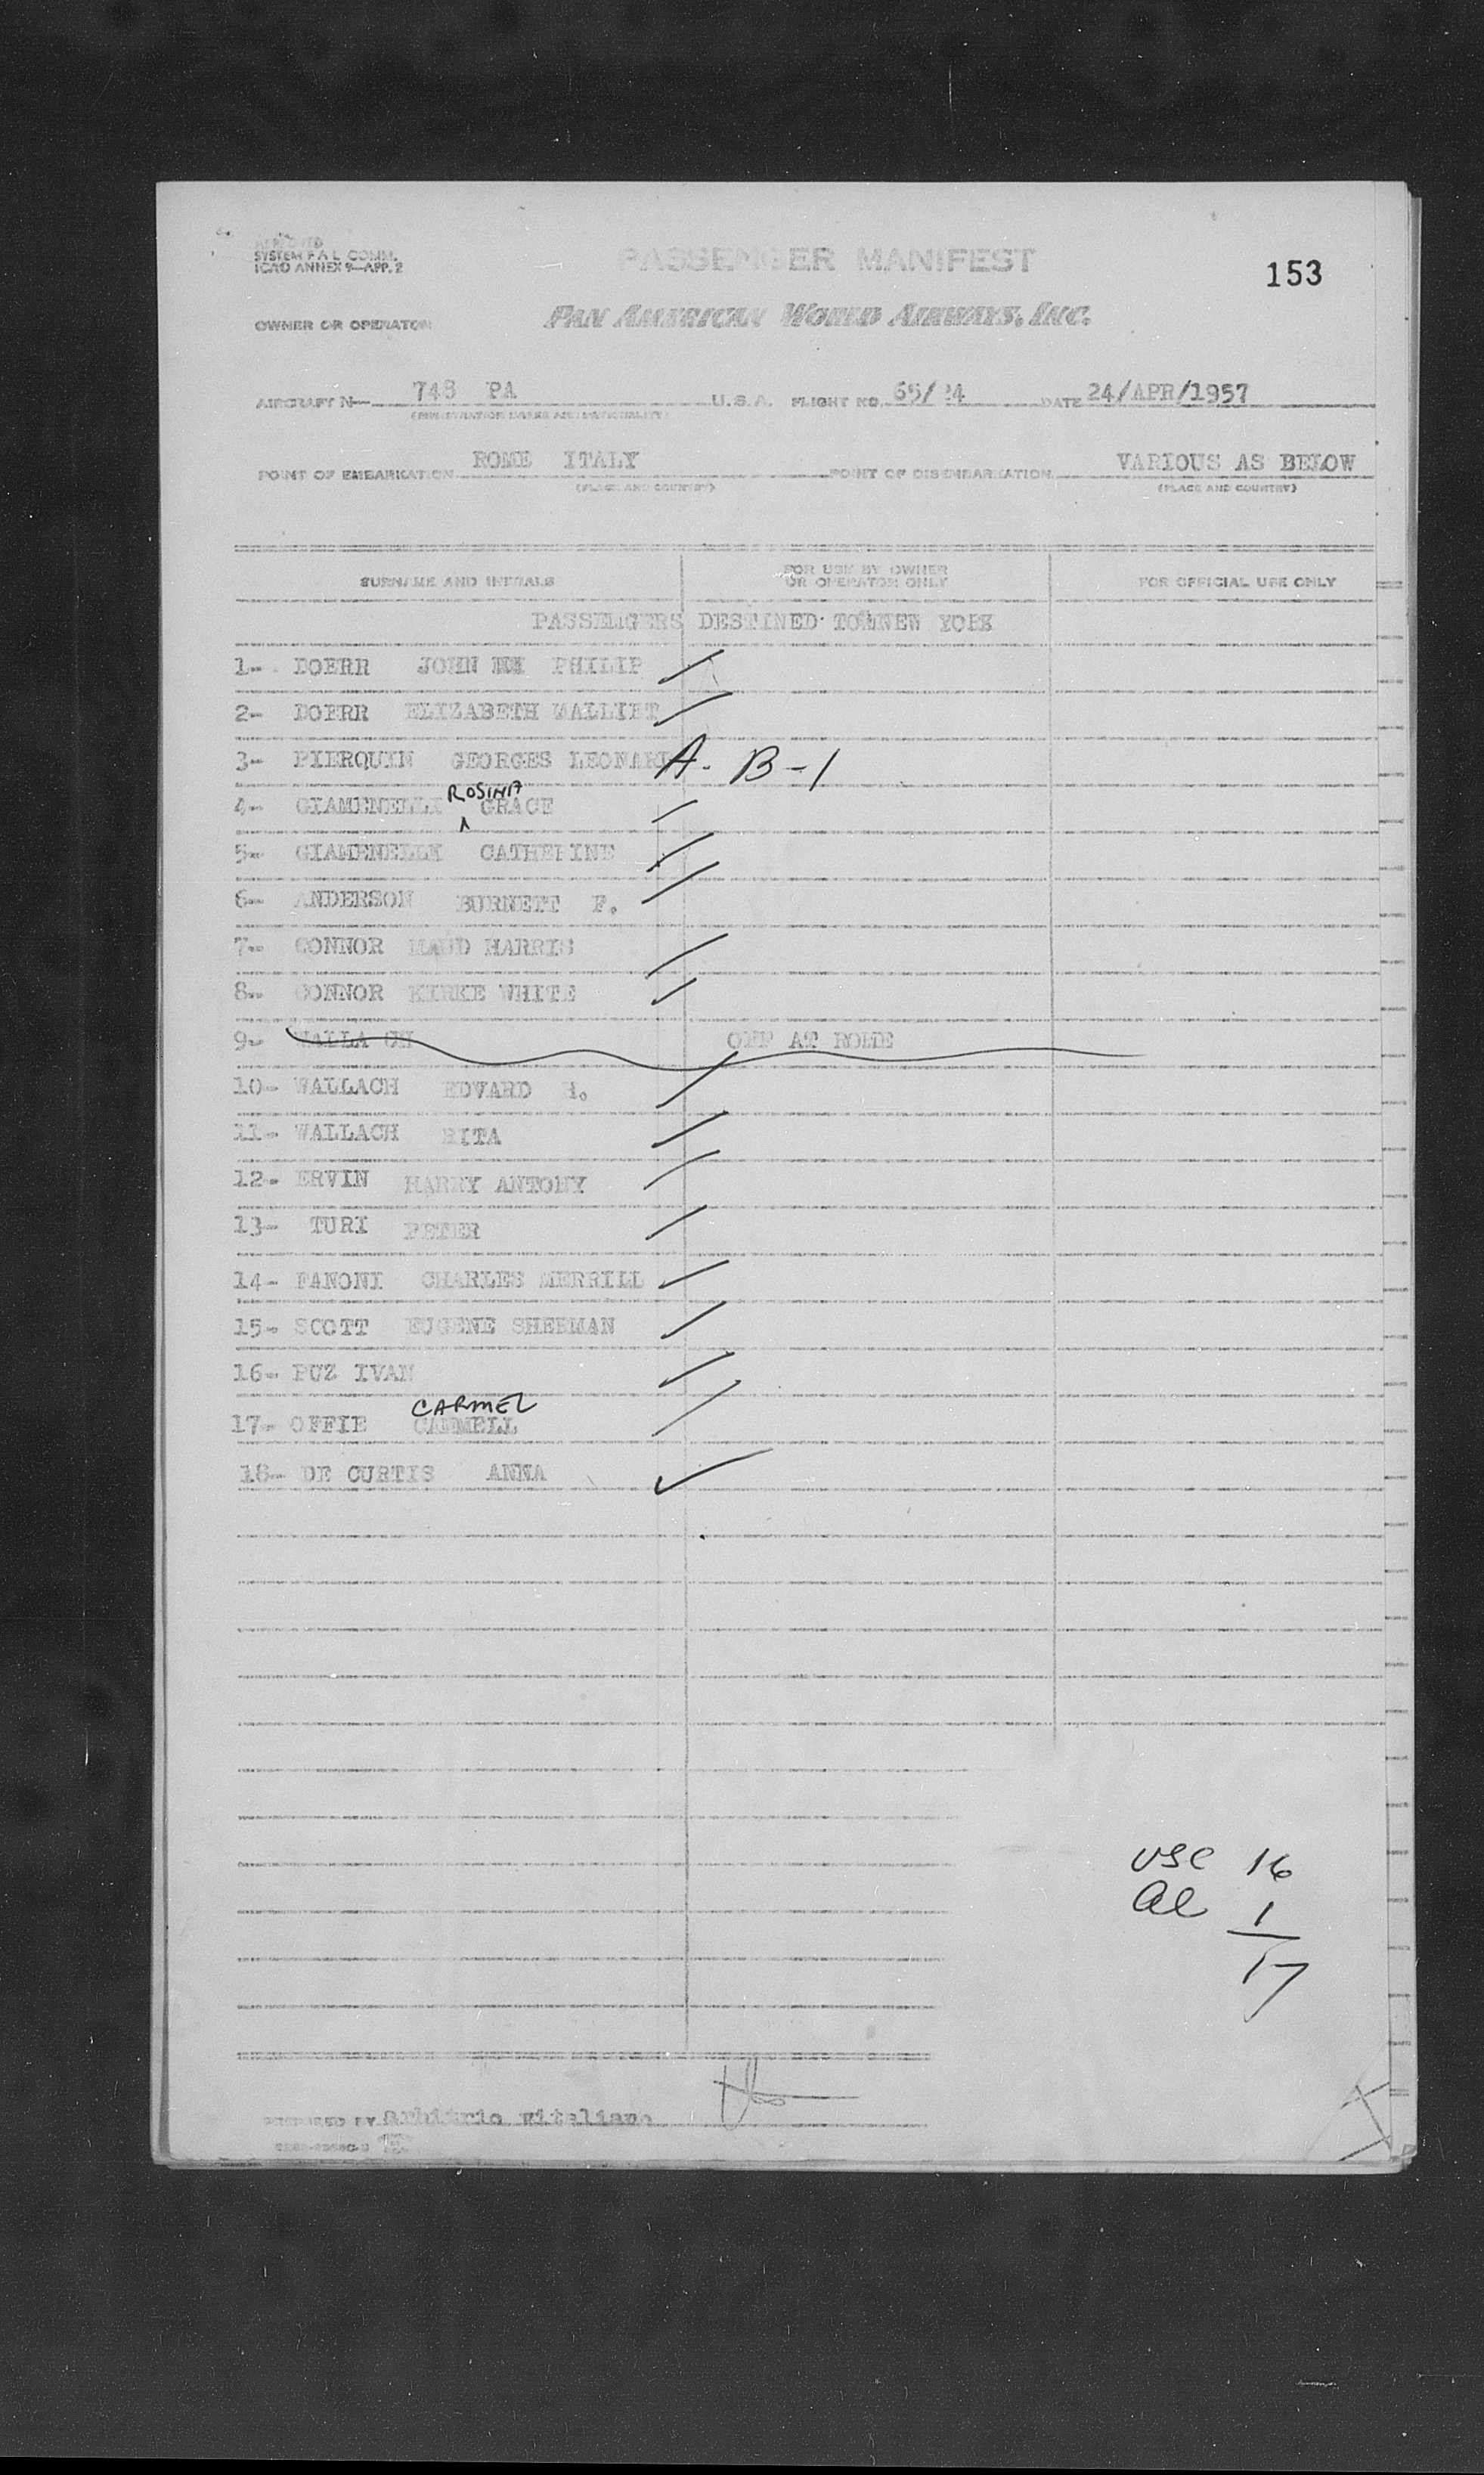 SYSTEM F A L COMM.
ICAO ANNEX 9—APP. 2
PASSENGER MANIFEST
153
OWNER OR OPERATOR
PAN AMERICAN WORLD AIRWAYS, INC.
AIRCRAFT N— 748 PA U.S.A. FLIGHT NO. 65/24 DATE 24/APR/1957
POINT OF EMBARKATION ROME ITALY POINT OF DISEMBARKATION VARIOUS AS BELOW
(PLACE AND COUNTRY) (PLACE AND COUNTRY)
SURNAME AND INITIALS FOR USE BY OWNER OR OPERATOR ONLY FOR OFFICIAL USE ONLY
PASSENGERS DESTINED TO NEW YORK
1- DOERR JOHN PHILIP
2- DOERR ELIZABETH
3- PIERQUIN GEORGES LEONARD A- B-1
ROSINA
4- GIAMENELLI GRACE
5- GIAMENELLI CATHERINE
6- ANDERSON BURNETT F.
7- CONNOR MAUD HARRIS
8- CONNOR KIRKE WHITE
9- WALLA CH OFF AT ROME
10- WALLACH EDVARD H.
11- WALLACH RITA
12- ERVIN HARRY ANTONY
13- TURI PETER
14- FANONI CHARLES MERRILL
15- SCOTT EUGENE SHERMAN
16- PUZ IVAN
CARMEL
17- OFFIE CAMMELL
18- DE CURTIS ANNA
USC 16
al 1
17
PREPARED BY